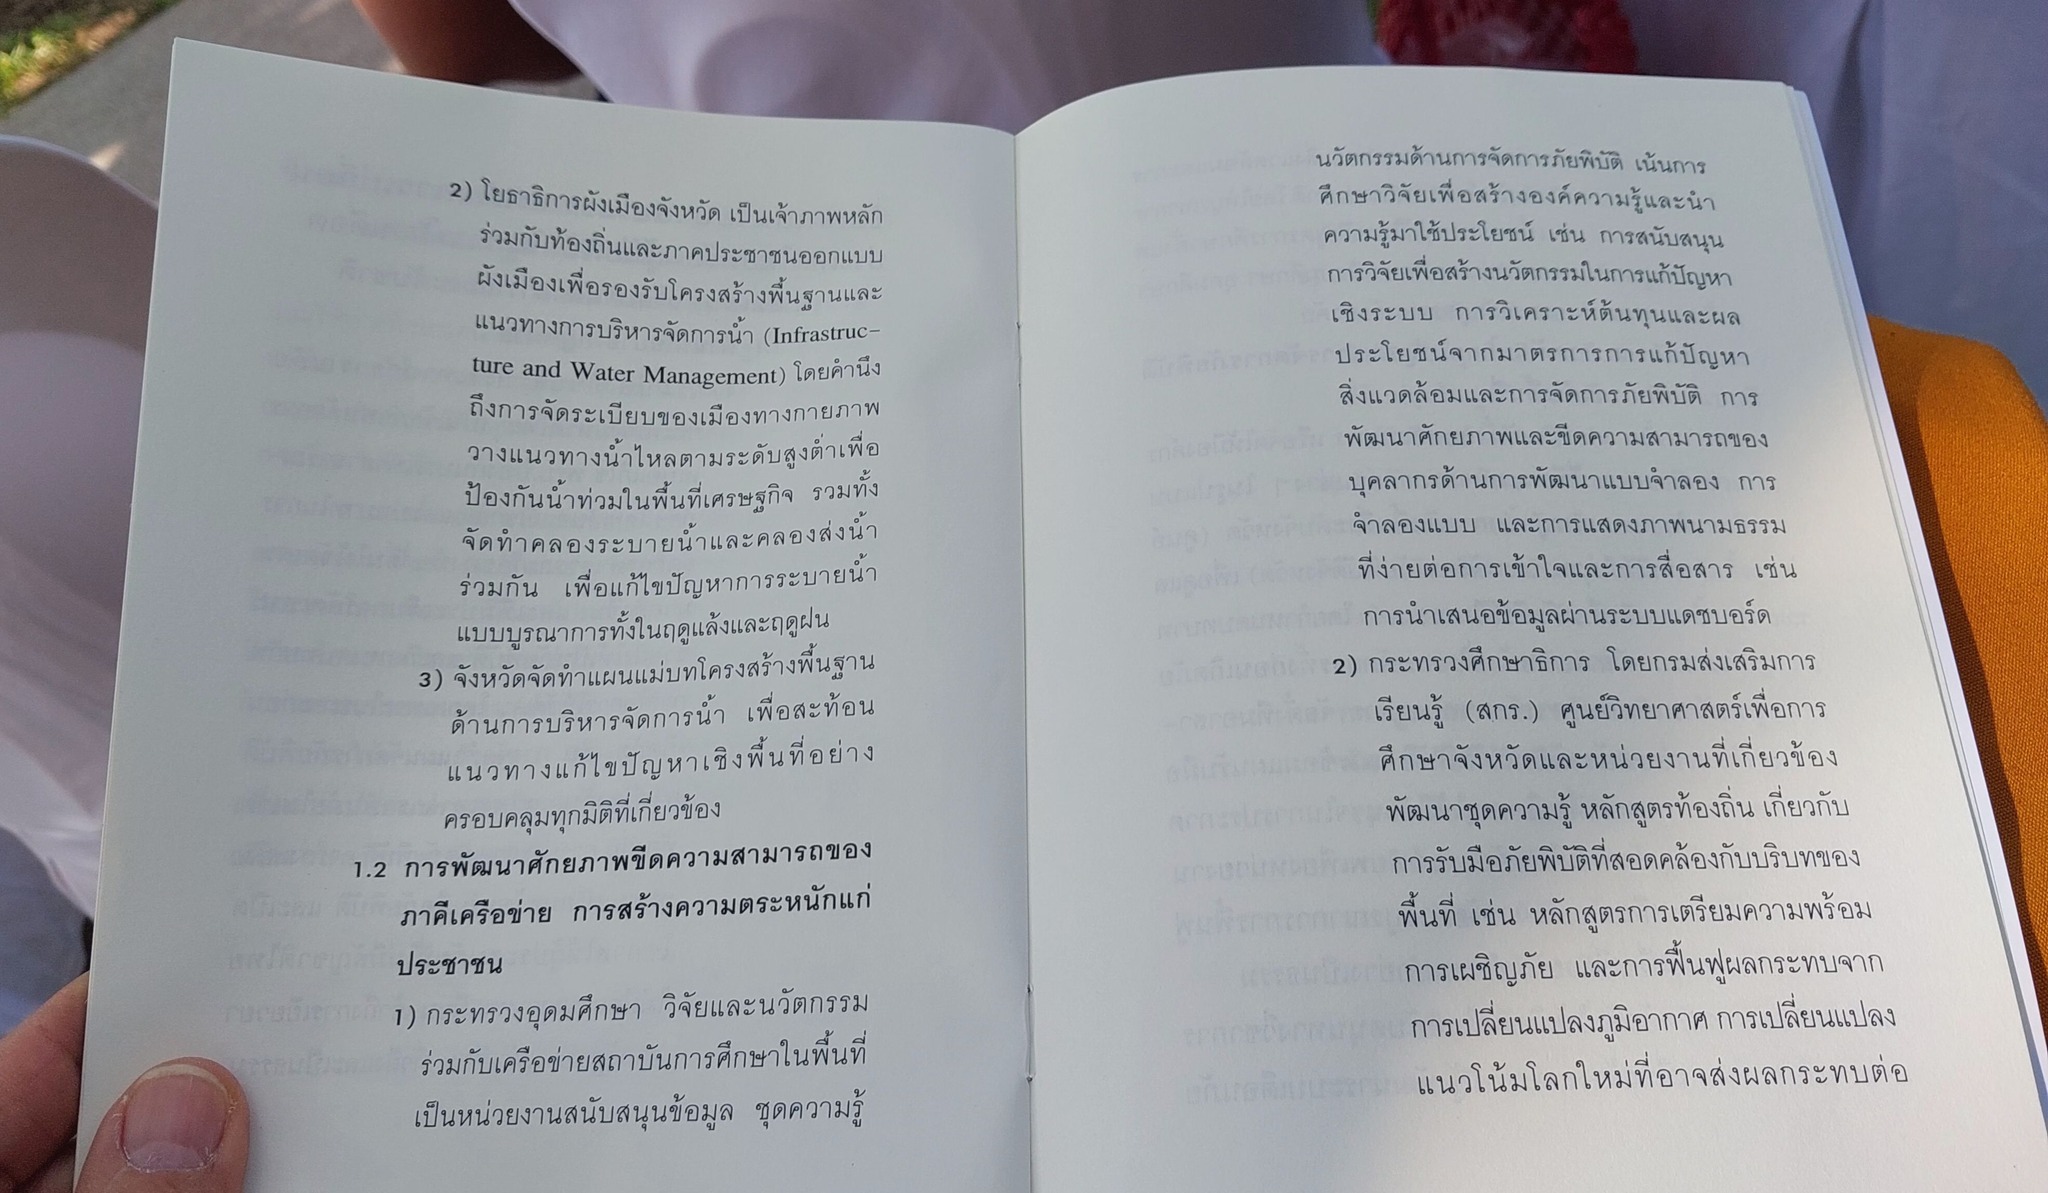 2) โยธาธิการผังเมืองจังหวัด เป็นเจ้าภาพหลัก
ร่วมกับท้องถิ่นและภาคประชาชนออกแบบ
ผังเมืองเพื่อรองรับโครงสร้างพื้นฐานและ
แนวทางการบริหารจัดการน้ำ (Infrastruc-
ture and Water Management) โดยคำนึง
ถึงการจัดระเบียบของเมืองทางกายภาพ
วางแนวทางน้ำไหลตามระดับสูงต่ำเพื่อ
ป้องกันน้ำท่วมในพื้นที่เศรษฐกิจ รวมทั้ง
จัดทำคลองระบายน้ำและคลองส่งน้ำ
ร่วมกัน เพื่อแก้ไขปัญหาการระบายน้ำ
แบบบูรณาการทั้งในฤดูแล้งและฤดูฝน
3) จังหวัดจัดทำแผนแม่บทโครงสร้างพื้นฐาน
ด้านการบริหารจัดการน้ำ เพื่อสะท้อน
แนวทางแก้ไขปัญหาเชิงพื้นที่อย่าง
ครอบคลุมทุกมิติที่เกี่ยวข้อง
1.2 การพัฒนาศักยภาพขีดความสามารถของ
ภาคีเครือข่าย การสร้างความตระหนักแก่
ประชาชน
1) กระทรวงอุดมศึกษา วิจัยและนวัตกรรม
ร่วมกับเครือข่ายสถาบันการศึกษาในพื้นที่
เป็นหน่วยงานสนับสนุนข้อมูล ชุดความรู้
นวัตกรรมด้านการจัดการภัยพิบัติ เน้นการ
ศึกษาวิจัยเพื่อสร้างองค์ความรู้และนำ
ความรู้มาใช้ประโยชน์ เช่น การสนับสนุน
การวิจัยเพื่อสร้างนวัตกรรมในการแก้ปัญหา
เชิงระบบ การวิเคราะห์ต้นทุนและผล
ประโยชน์จากมาตรการการแก้ปัญหา
สิ่งแวดล้อมและการจัดการภัยพิบัติ การ
พัฒนาศักยภาพและขีดความสามารถของ
บุคลากรด้านการพัฒนาแบบจำลอง การ
จำลองแบบ และการแสดงภาพนามธรรม
ที่ง่ายต่อการเข้าใจและการสื่อสาร เช่น
การนำเสนอข้อมูลผ่านระบบแดชบอร์ด
2) กระทรวงศึกษาธิการ โดยกรมส่งเสริมการ
เรียนรู้ (สกร.) ศูนย์วิทยาศาสตร์เพื่อการ
ศึกษาจังหวัดและหน่วยงานที่เกี่ยวข้อง
พัฒนาชุดความรู้ หลักสูตรท้องถิ่น เกี่ยวกับ
การรับมือภัยพิบัติที่สอดคล้องกับบริบทของ
พื้นที่ เช่น หลักสูตรการเตรียมความพร้อม
การเผชิญภัย และการฟื้นฟูผลกระทบจาก
การเปลี่ยนแปลงภูมิอากาศ การเปลี่ยนแปลง
แนวโน้มโลกใหม่ที่อาจส่งผลกระทบต่อ